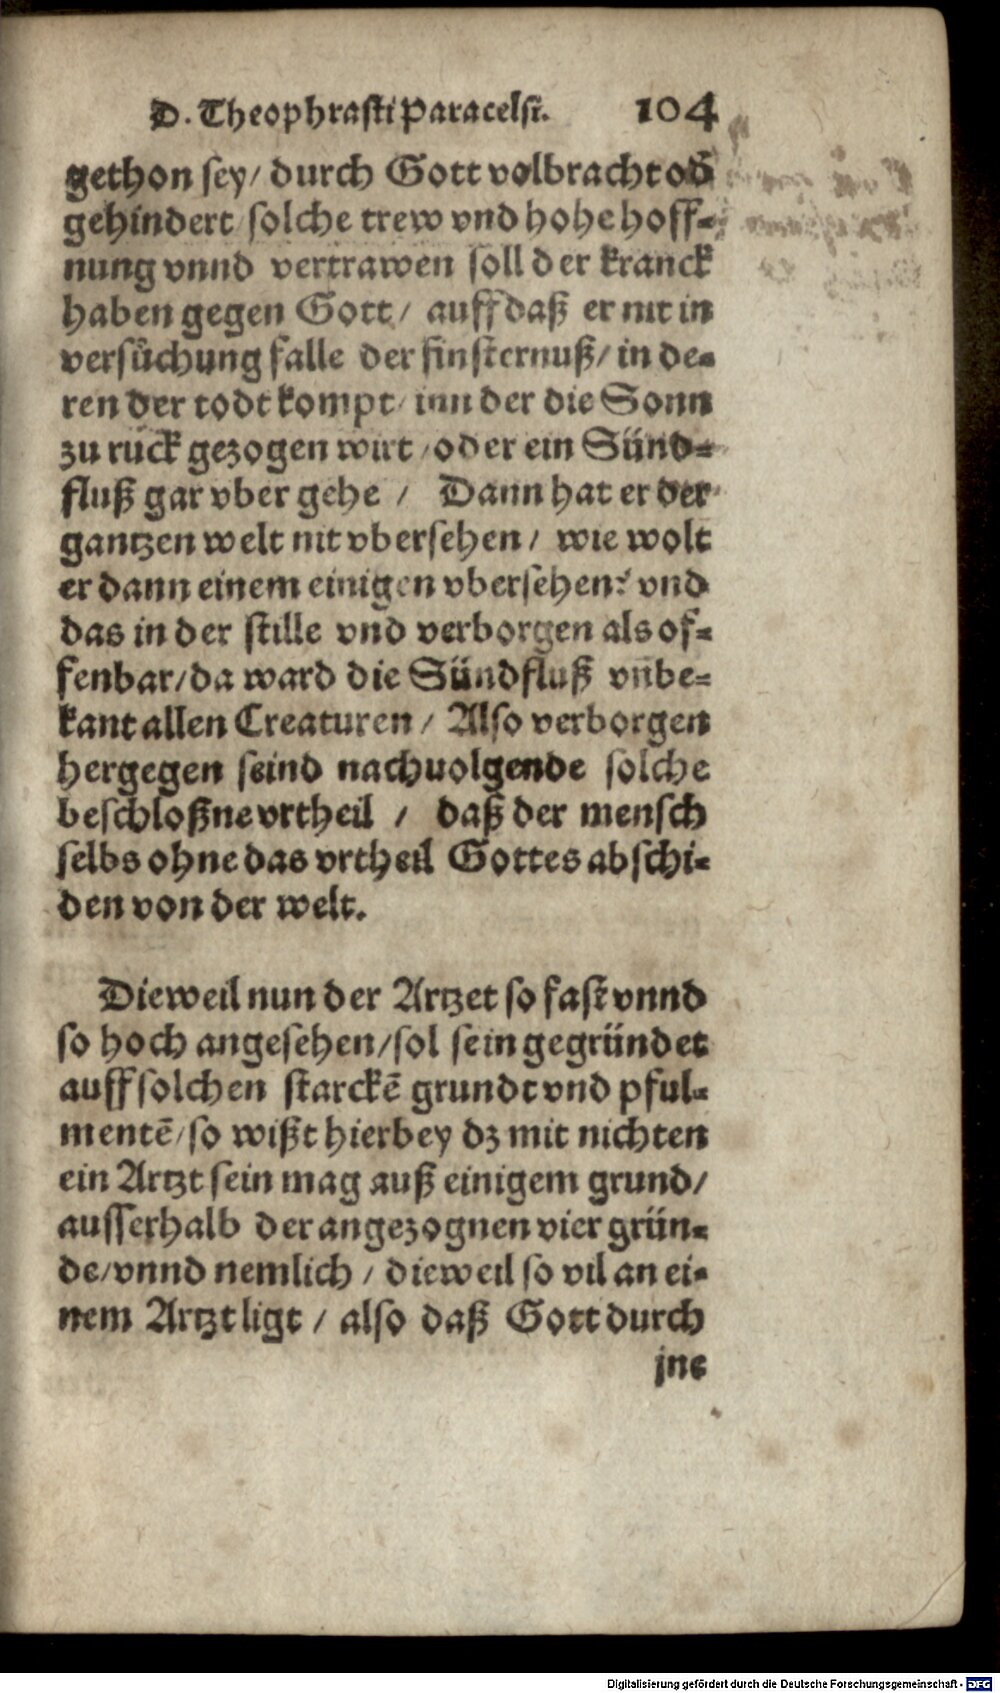 D. Theophrasti Paracelsi. 104
gethon sey/ durch Gott volbracht od
gehindert/ solche trew vnd hohe hoff⸗
nung vnnd vertrawen soll der kranck
haben gegen Gott/ auff daß er nit in
versůchung falle der finsternuß/ in de⸗
ren der todt kompt/ inn der die Sonn
zu rück gezogen wirt/ oder ein Sünd⸗
fluß gar vber gehe / Dann hat er der
gantzen welt nit vbersehen/ wie wolt
er dann einem einigen vbersehen? vnd
das in der stille vnd verborgen als of⸗
fenbar/ da ward die Sündfluß vñbe⸗
kant allen Creaturen/ Also verborgen
hergegen seind nachuolgende solche
beschloßne vrtheil / daß der mensch
selbs ohne das vrtheil Gottes abschi⸗
den von der welt.
Dieweil nun der Artzet so fast vnnd
so hoch angesehen/ sol sein gegründet
auff solchen starckẽ grundt vnd pful⸗
mentẽ/ so wißt hierbey dz mit nichten
ein Artzt sein mag auß einigem grund/
ausserhalb der angezognen vier grün⸗
de/ vnnd nemlich / dieweil so vil an ei⸗
nem Artzt ligt / also daß Gott durch
jne
Digitalisierung gefördert durch die Deutsche Forschungsgemeinschaft - DFG